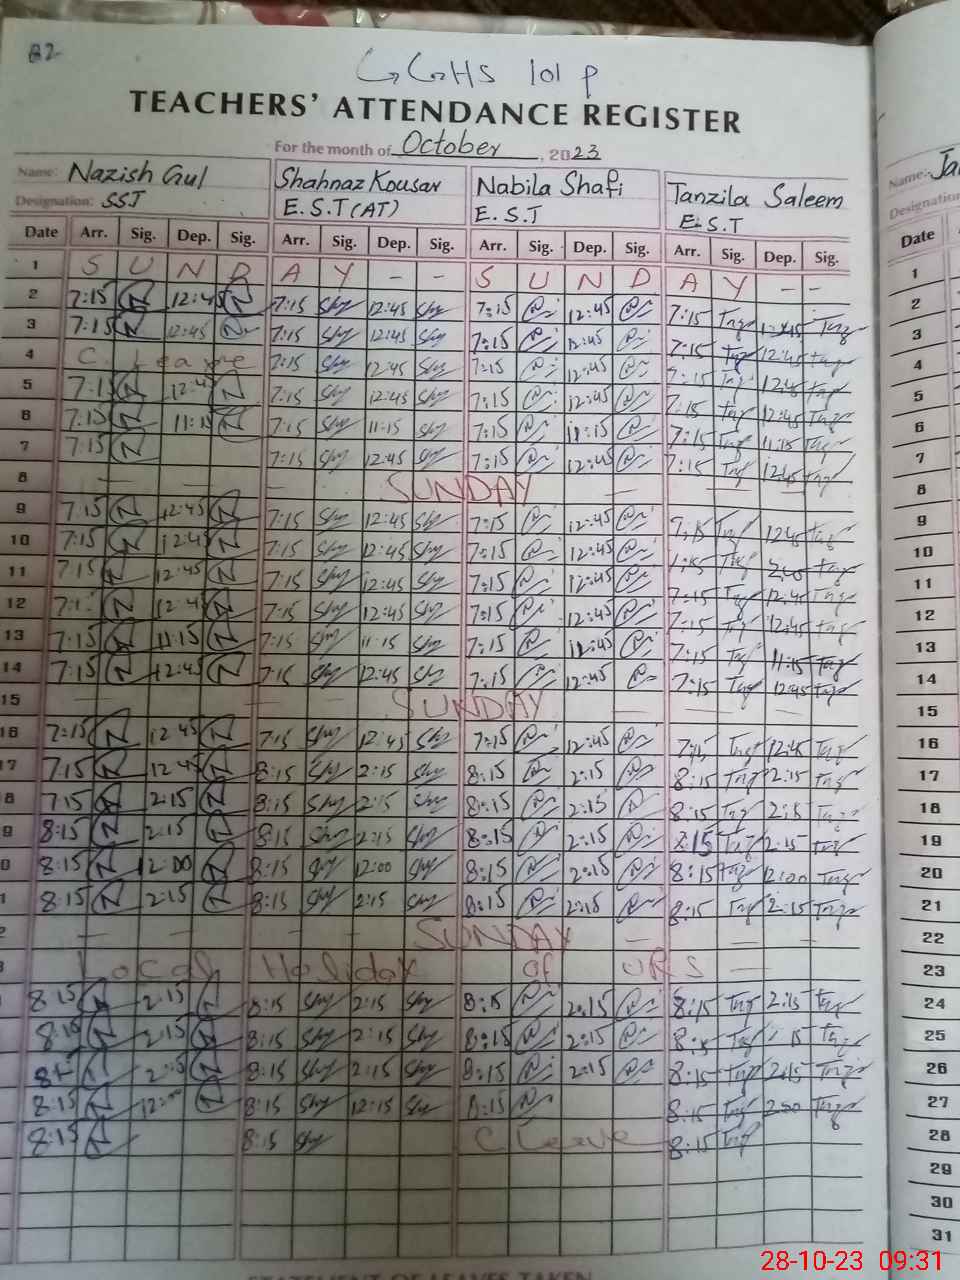 82
GGHS 101 P
TEACHERS' ATTENDANCE REGISTER
For the month of October, 2023
Name: Nazish Gul Shahnaz Kousar Nabila Shafi Tanzila Saleem Name:- Ja
Designation: SST E.S.T (AT) E.S.T E.S.T Designation
Date Arr. Sig. Dep. Sig. Arr. Sig. Dep. Sig. Arr. Sig. Dep. Sig. Arr. Sig. Dep. Sig. Date
1 S U N D A Y - - S U N D A Y - - 1
2 7:15 12:45 7:15 Shy 12:45 Shy 7:15 12:45 7:15 Tnz 12:45 Tnz 2
3 7:15 12:45 7:15 Shy 12:45 Shy 7:15 12:45 7:15 Tnz 12:45 Tnz 3
4 C. Leave 7:15 Shy 12:45 Shy 7:15 12:45 7:15 Tnz 12:45 Tnz 4
5 7:15 12:45 7:15 Shy 12:45 Shy 7:15 12:45 7:15 Tnz 12:45 Tnz 5
6 7:15 11:15 7:15 Shy 11:15 Shy 7:15 11:15 7:15 Tnz 11:15 Tnz 6
7 7:15 7:15 Shy 12:45 Shy 7:15 12:45 7:15 Tnz 12:45 Tnz 7
8 — — — SUNDAY — — — 8
9 7:15 12:45 7:15 Shy 12:45 Shy 7:15 12:45 7:15 Tnz 12:45 Tnz 9
10 7:15 12:45 7:15 Shy 12:45 Shy 7:15 12:45 Tnz 2:00 Tnz 10
11 7:15 12:45 7:15 Shy 12:45 Shy 7:15 12:45 7:15 Tnz 12:45 Tnz 11
12 12:45 7:15 Shy 12:45 Shy 7:15 12:45 7:15 Tnz 12:45 Tnz 12
13 7:15 11:15 7:15 Shy 11:15 Shy 7:15 7:15 Tnz 11:15 Tnz 13
14 7:15 12:45 7:15 Shy 12:45 Shy 7:15 12:45 7:15 Tnz 12:45 Tnz 14
15 — — SUNDAY — — — 15
16 7:15 12:45 7:15 Shy 12:45 Shy 7:15 12:45 Tnz 12:45 Tnz 16
17 7:15 12:45 8:15 Shy 2:15 Shy 8:15 2:15 8:15 Tnz 2:15 Tnz 17
18 7:15 2:15 8:15 Shy 2:15 Shy 8:15 2:15 8:15 Tnz 2:15 Tnz 18
19 8:15 2:15 8:15 Shy 2:15 Shy 8:15 2:15 8:15 Tnz 2:15 Tnz 19
20 8:15 12:00 8:15 Shy 12:00 Shy 8:15 2:15 8:15 Tnz 12:00 Tnz 20
21 8:15 2:15 8:15 Shy 2:15 Shy 8:15 2:15 8:15 Tnz 2:15 Tnz 21
— — — — SUNDAY — — — 22
Local Holiday of URS — 23
8:15 2:15 8:15 Shy 2:15 Shy 8:15 2:15 8:15 Tnz 2:15 Tnz 24
8:15 2:15 8:15 Shy 2:15 Shy 8:15 2:15 Tnz Tnz 25
8:15 Shy 2:15 Shy 8:15 2:15 8:15 Tnz 2:15 Tnz 26
8:15 12:00 8:15 Shy 12:15 Shy 8:15 8:15 Tnz Tnz 27
8:15 8:15 Shy C Leave 8:15 Tnz 28
29
30
31
STATEMENT OF LEAVES TAKEN
28-10-23 09:31